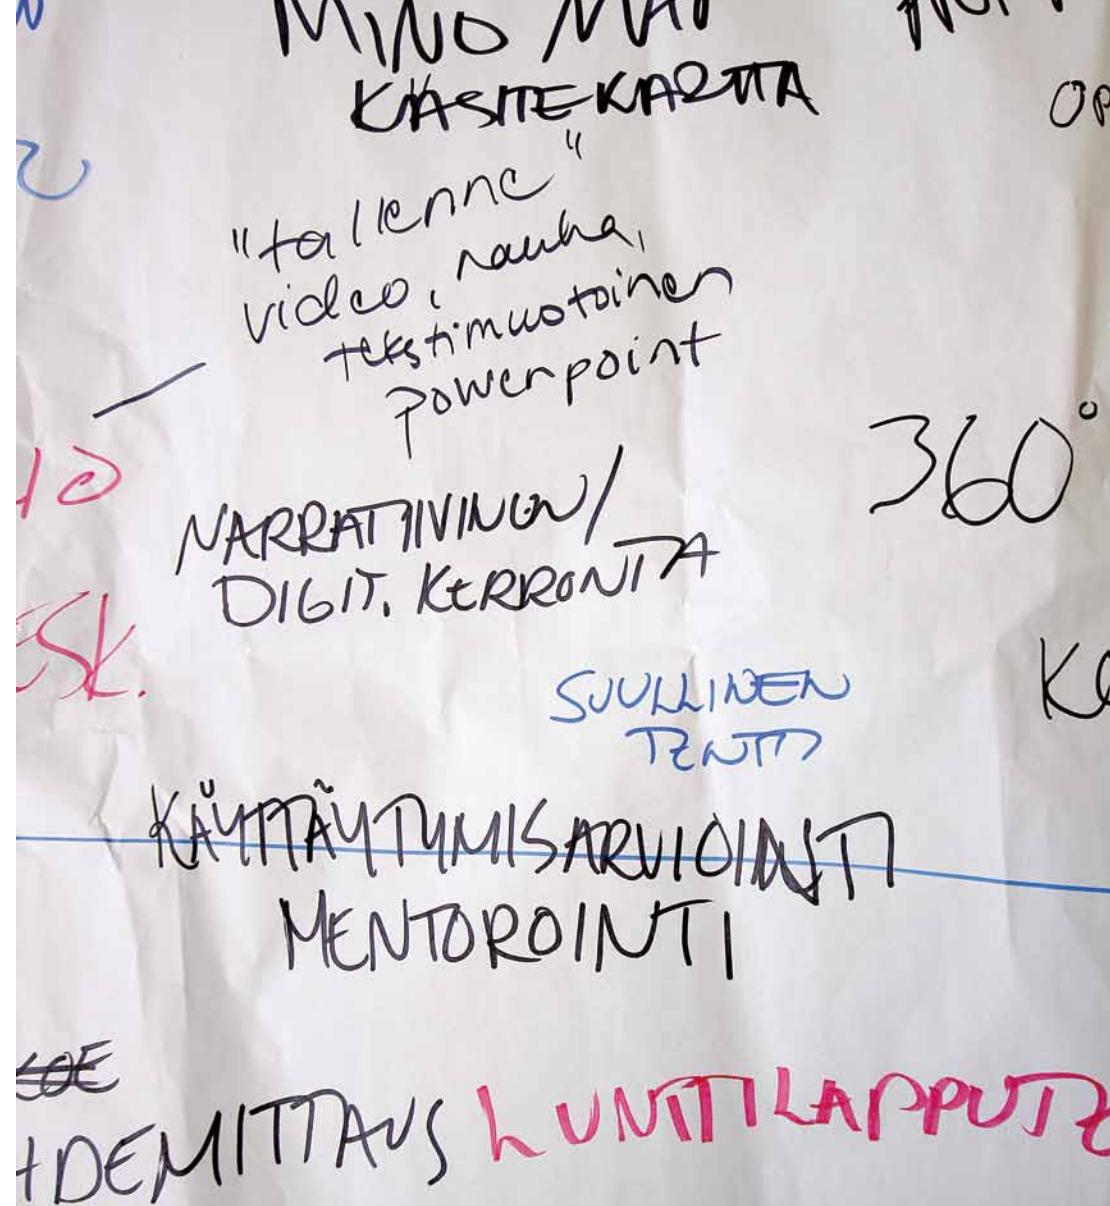 MIND MAP
KÄSITEKARTTA
"tallenne"
video, nauha,
tekstimuotoinen
powerpoint
360°
NARRATIIVINEN/
DIGIT. KERRONTA
ESK.
SUULLINEN
TENTTI
KÄYTTÄYTYMISARVIOINTI
MENTOROINTI
KOE
LUNTTILAPPUTE